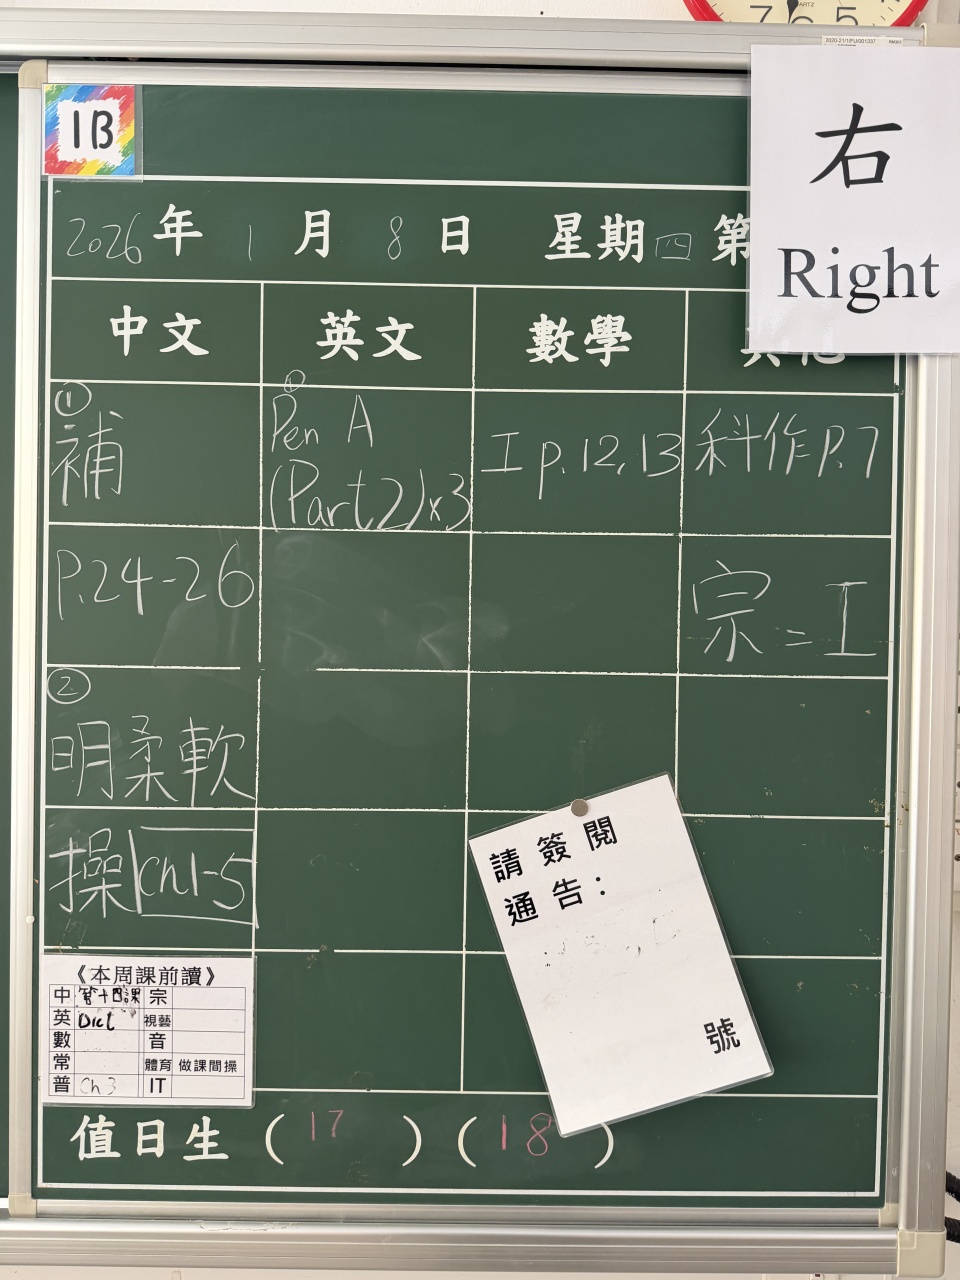 7 6 5
QUARTZ
2020-21/1/FU/001337
1B
右
Right
2026 年 1 月 8 日 星期 四 第
中文 英文 數學
① 補
P.24-26
② 明柔軟
操 Ch1-5
① Pen A
(Part 2) x3
工 p.12, 13
科作 P.7
宗=工
請簽閱
通告：
號
《本周課前讀》
中 第十四課 宗
英 Dict 視藝
數 音
常 體育 做課間操
普 Ch 3 IT
值日生 ( 17 ) ( 18 )